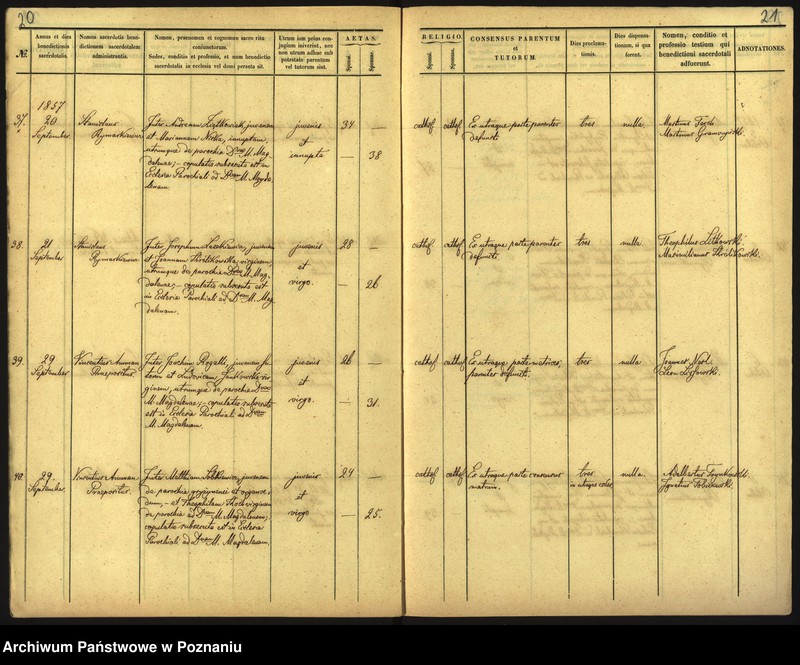 20
№
Annus et dies
benedictionis
sacerdotalis.
Nomen sacerdotis bene-
dictionem sacerdotalem
administrantis.
Nomen, prænomen et cognomen sacro ritu
coniunctorum.
Sedes, conditio et professio, et num benedictio
sacerdotalis in ecclesia vel domi peracta sit.
Utrum iam prius con-
jugium iniverint, nec
non utrum adhuc sub
potestate parentum
vel tutorum sint.
AETAS.
Sponsi.
Sponsae.
1857
37.
20
September
Stanislaus
Rymarkiewicz
Inter Andream juvenem
et Mariannam innuptam,
utrumque de parochia D. M. Mag-
dalenae; – copulatio subsecuta est in
Ecclesia Parochiali ad D. M. Magda-
lenam.
juvenis
et
innupta
34 —
— 38
38.
21
September
Stanislaus
Rymarkiewicz
Inter Josephum juvenem
et Joannam virginem,
utrumque de parochia D. M. Mag-
dalenae; – copulatio subsecuta est
in Ecclesia Parochiali ad D. M. Mag-
dalenam.
juvenis
et
virgo.
28 —
— 26
39.
29
September
Vincentius Amman
Praepositus
Inter Joachim Rogalli, juvenem
et Ludovicam vir-
ginem, utrumque de parochia D.
M. Magdalenae; – copulatio subsecuta
est in Ecclesia Parochiali ad D.
M. Magdalenam.
juvenis
et
virgo.
26 —
— 31.
40.
29
September
Vincentius Amman
Praepositus.
Inter Matthiam juvenem
de parochia
et Theophilam virginem
de parochia ad D. M. Magdalenam;
copulatio subsecuta est in Ecclesia
Parochiali ad D. M. Magdalenam.
juvenis
et
virgo
24 —
— 25.
21
RELIGIO.
Sponsi.
Sponsae.
CONSENSUS PARENTUM
et
TUTORUM.
Dies proclama-
tionis.
Dies dispensa-
tionum, si qua
forent.
Nomen, conditio et
professio testium qui
benedictioni sacerdotali
adfuerunt.
ADNOTATIONES.
cathol. cathol. Ex utraque parte parentes
defuncti
tres
nulla.
Martinus
Martinus
cathol. cathol. Ex utraque parte parentes
defuncti.
tres
nulla.
Theophilus Litkowski.
Maximilianus
cathol. cathol. Ex utraque parte
pariter defuncti.
tres
nulla
Joannes
Leon
cathol. cathol. Ex utraque parte consensus
matrum.
tres
in utraque eccles.
nulla.
Adalbertus
Ignatius
Archiwum Państwowe w Poznaniu